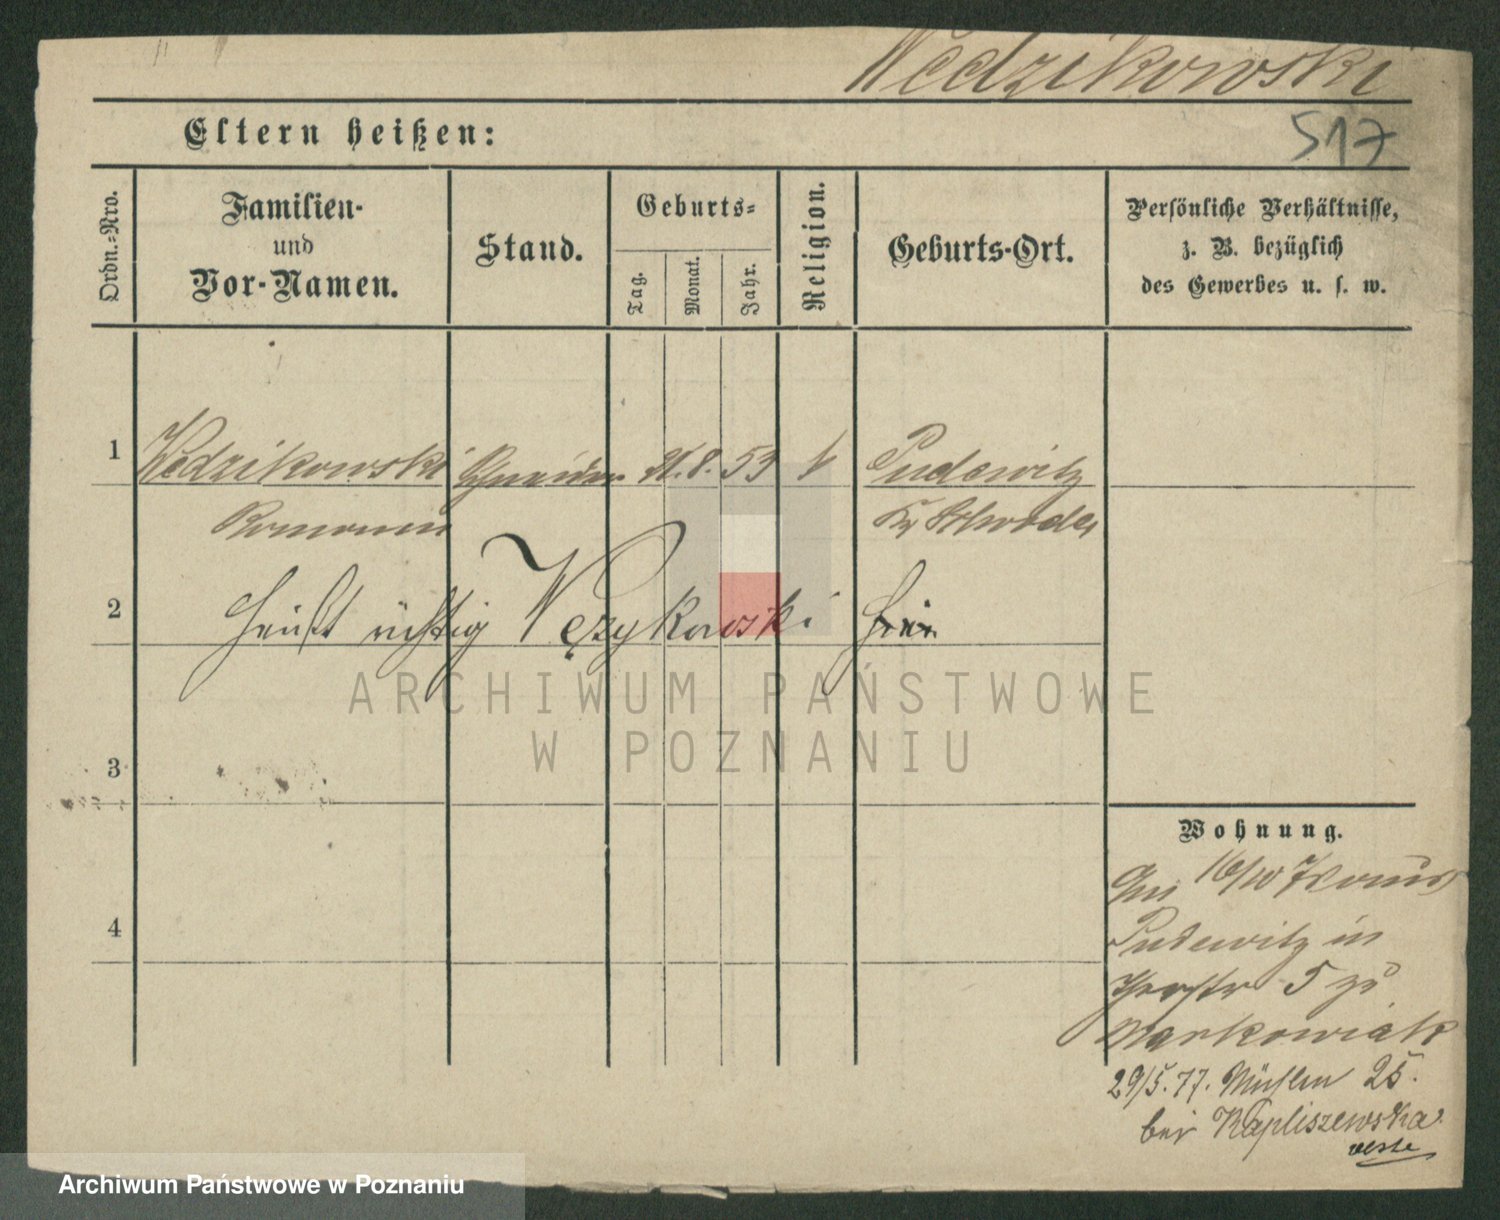 Wedzikowski
517
Eltern heißen:
Ordn.=Nro.
Familien-
und
Vor-Namen.
Stand.
Geburts=
Tag.
Monat.
Jahr.
Religion.
Geburts-Ort.
Persönliche Verhältnisse,
z. B. bezüglich
des Gewerbes u. s. w.
1 Wedzikowski Schneider 21. 8. 53 k Pudewitz
Roman Kr Schroda
2 heißt richtig Węzykowski hier
ARCHIWUM PAŃSTWOWE
W POZNANIU
3
4
Wohnung.
16/10 von
Pudewitz in
5 zu
Markowiak
29/5. 77. Mühlen 25.
bei Kapliszewska
Archiwum Państwowe w Poznaniu